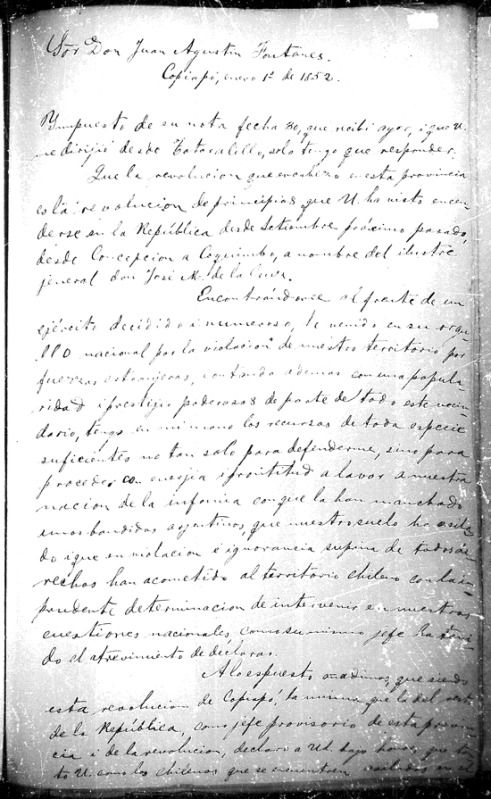 Sor Don Juan Agustin Fontanes.
Copiapó, enero 1º de 1852.
Impuesto de su nota fecha 30, que recibi ayer, i que U.
me dirijió desde Totoralillo, solo tengo que responder.
Que la revolucion que encabezo en esta provincia
es la revolucion de principios, que U. ha visto encen-
derse en la República desde Setiembre próximo pasado,
desde Concepcion a Coquimbo, a nombre del ilustre
jeneral don José M. de la Cruz.
Encontrándome al frente de un
ejército decidido i numeroso, en su orgu-
llo nacional por la violacion de nuestro territorio por
fuerzas estranjeras, contando ademas con una popula-
ridad i prestijio poderosos de parte de todo este vecin-
dario, tengo en mi mano los recursos de toda especie
suficientes no tan solo para defenderme, sino para
proceder con enerjia i prontitud a lavar a nuestra
nacion de la infamia con que la han manchado
unos bandidos arjentinos, que nuestro suelo ha asila-
do i que en violacion e ignorancia supina de todos de-
rechos han acometido al territorio chileno con la im-
prudente determinacion de intervenir en nuestras
cuestiones nacionales, como su mismo jefe ha teni-
do el atrevimiento de declarar.
A lo espuesto añadimos, que siendo
esta revolucion de Copiapó, la misma que la del resto
de la República, como jefe provisorio de esta provin-
cia i de la revolucion, declaro a Ud. bajo honor, que tan-
to U. como los chilenos que se encuentren